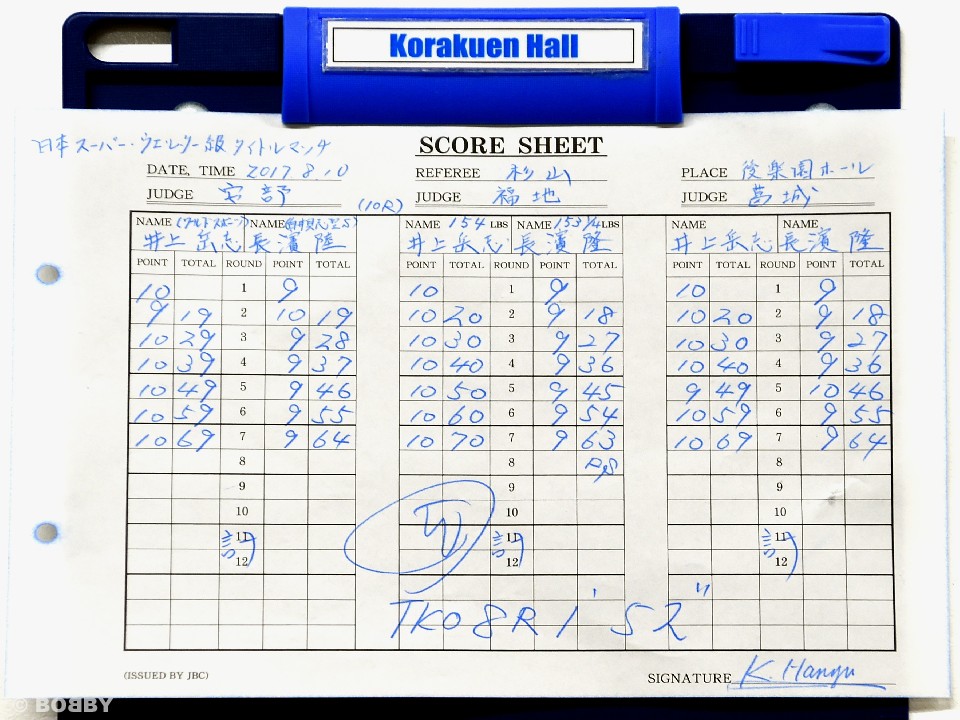 Korakuen Hall
日本スーパー・ウエルター級タイトルマッチ
SCORE SHEET
DATE, TIME 2017 8.10 REFEREE 杉山 PLACE 後楽園ホール
JUDGE 安部 (10R) JUDGE 福地 JUDGE 葛城
NAME (ワールドスポーツ) NAME NAME 154 LBS NAME 153 1/4 LBS NAME NAME
井上岳志 長濱陸 井上岳志 長濱陸 井上岳志 長濱陸
POINT TOTAL ROUND POINT TOTAL POINT TOTAL ROUND POINT TOTAL POINT TOTAL ROUND POINT TOTAL
10 1 9 10 1 9 10 1 9
9 19 2 10 19 10 20 2 9 18 10 20 2 9 18
10 29 3 9 28 10 30 3 9 27 10 30 3 9 27
10 39 4 9 37 10 40 4 9 36 10 40 4 9 36
10 49 5 9 46 10 50 5 9 45 9 49 5 10 46
10 59 6 9 55 10 60 6 9 54 10 59 6 9 55
10 69 7 9 64 10 70 7 9 63 10 69 7 9 64
8 8 8
9 9 9
10 10 10
11 11 11
12 12 12
TKO 8R 1' 52"
(ISSUED BY JBC) SIGNATURE K. Hangu
© BOBBY